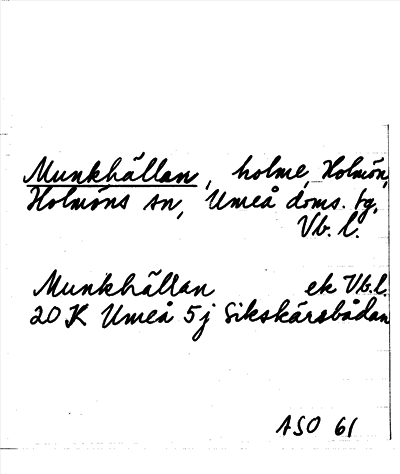 Munkhällan, holme, Holmön,
Holmöns sn, Umeå doms. tg,
Vb. l.
Munkhällan ek Vb.l.
20 K Umeå 5j Sikskärsbådan
ASO 61